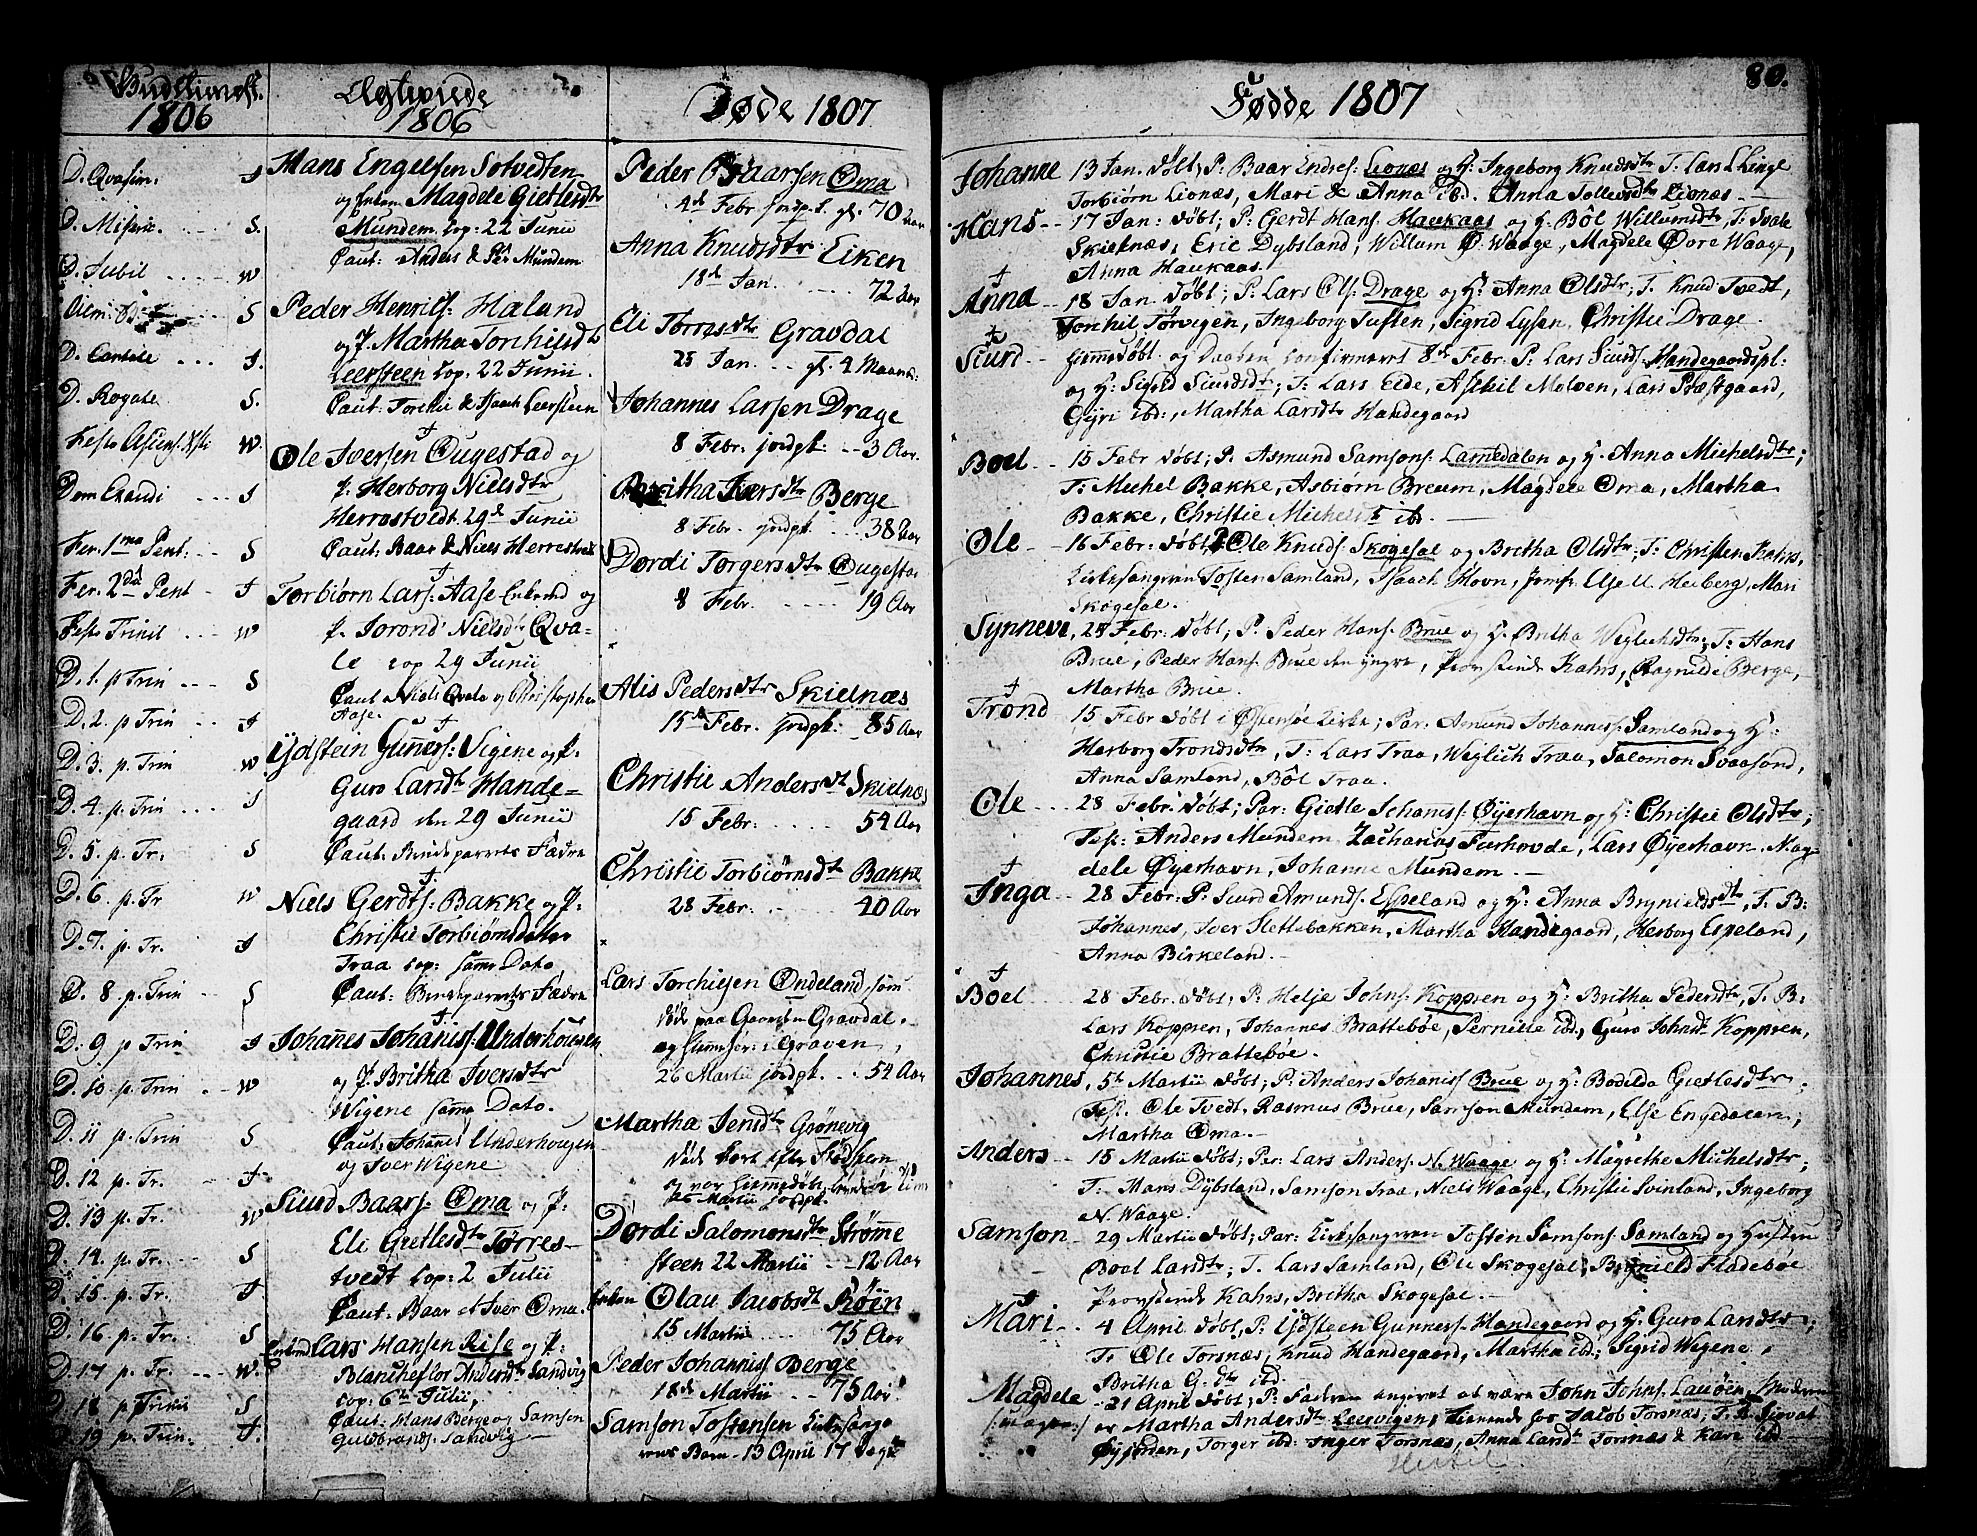 1806
D. Qvasim. J
D. Miseric. S.
D. Jubil W
S
D. Cantate J.
D. Rogate S.
Festo Ascens. Xsti W.
Dom Exaudi J
Fer. 1ma Pent: S
Fer. 2da Pent J
Festo Trinit W
D. 1. p Trin S
D. 2. p Trin J
D. 3. p. Trin W
D. 4. p. Trin J
D. 5. p. Tr. S
D. 6. p. Tr W
D. 7. p. Tr. J
D. 8. p. Trin S
D. 9 p Trin J
D. 10. p. Trin W
D. 11 p. Trin S
D. 12 p. Tr. J
D. 13 p. Tr. W
D. 14. p. Tr. S
D. 15. p. Tr. J
D. 16 p. Tr. S
D. 17 p. Tr. W.
D. 18 p. Trin S
D. 19 p. Trin. J.
Ægteviede
1806
Hans Engelsen Sotvedten
og Enken Magdele Gietlesdtr
Mundem Cop: 22 Junii
Caut: Anders & Per Mundem
Peder Henrics: Haland
og P. Martha Torchilsdtr
Leersteen Cop: 22 Junii.
Caut: Torchil & Isaach Leersteen
Ole Iversen Øugestad og
P. Herborg Nielsdtr
Herrestvedt 29d Junii
Caut: Baar & Niels Herrestvedt
Torbiørn Lars: Aase Enkemd og
P. Jorond Nielsdtr Qva-
le cop 29 Junii
Caut Niels Qvale og Christopher
Aase.
Ydstein Guners: Vigene og P.
Guro Larsdtr Hande-
gaard den 29 Junii
Caut: Bendeparrets Fædre
Niels Gerdts: Bakke og P.
Christie Torbiørnsdatter
Traa cop: samme Dato
Caut: Bendeparrets Fædre
Johannes Johaniss: Underhougen
og P. Britha Iversdtr
Wigene samme Dato.
Caut: Johannes Underhougen
og Iver Wigene
Siurd Baars: Oma og P.
Eli Gietlesdtr Tørres-
tvedt cop: 2 Julii
Caut: Baar et Iver Oma.
Lars Hansen Rise og P:
Blancheflor Andersdtr Sandvig
cop: 6te Julii,
Caut: Hans Berge og Samson
Guldbrands: Sandvig
Døde 1807
Peder Baarsen Oma
4de Febr jordp.t. gl. 70 Aar
Anna Knudsdtr Eiken
18d Jan. 72 Aar
Eli Torrasdtr Gravdal
25 Jan. gl. 4 Maan:
Johannes Larsen Drage
8 Febr. jordpt. 3 Aar.
Britha Iversdtr Berge
8 Febr. jordpt. 38 Aar
Dordi Torgersdtr Øugestad
8 Febr. 19 Aar
Alis Pedersdtr Skielnæs
15de Febr. jordpt: 85 Aar
Christie Andersdtr Skielnæs
15 Febr: 54 Aar
Christie Torbiørnsdtr Bakke
28 Febr. 40 Aar
Lars Torchilsen Ondeland, som
døde paa Gaarden Gravdal
i Graven,
26 Martii jordpt. 54 Aar
Martha Jensdtr Grønevig
døde kort efter Fødselen
Dordi Salomonsdtr Strømme
steen 22 Martii 12 Aar
Enken Olau Jacobsdtr Røen
15 Martii 75 Aar
Peder Johaniss Berge
18de Martii 75 Aar
Samson Tostensen Kirkesange
rens Barn 13 April 17 Dage
80.
Fødde 1807
Johanne 13 Jan. døbt, P. Baar Endres: Lionæs og H: Ingeborg Knudsdtr T. Lars L Linge
Torbiørn Lionæs, Mari & Anna ibd. Anna Tollevsdtr Lionæs
Hans 17 Jan: døbt; P: Gerdt Hans: Haukaas og H. Bôl Willumsdtr, T: Svale
Skielnæs, Eric Dybsland, Willum Ø. Waage, Magdele Øvre Waage,
Anna Haukaas.
Anna 18 Jan. døbt; P. Lars Ols: Drage og H: Anna Olsdtr; T. Knud Tvedt,
Torchil Torvigen, Ingeborg Tuften, Sigrid Lysen, Christie Drage.
Siurd hjemmedøbt og Daaben confirmeret 8de Febr. P: Lars Siurds: Handegaardspl:
og H: Sigrid Siursdtr, T: Lars Eide, Aschil Molven, Lars Præstgaard,
Gyri ibd:, Martha Larsdtr Handegaard
Boel 15 Febr døbt; P. Asmund Samsons: Lamedalen og H. Anna Michelsdtr;
T: Michel Bakke, Asbiørn Breum, Magdele Oma, Martha
Bakke, Christie Michelsdtr ibd.
Ole 16 Febr: døbt, P Ole Knuds: Skogesal og Britha Olsdtr; T: Christen Kahrs,
Kirkesangeren Tosten Samland, Isaach Hovn, Jomfr Else U. Heiberg, Mari
Skogesal.
Synneve, 24 Febr: døbt, P. Peder Hans: Brue og H. Britha Weglichsdtr; T: Hans
Brue, Peder Hans: Brue den yngre, Provstinde Kahrs, Ragnilde Berge,
Martha Brue.
Trond 15 Febr døbt i Østensøe Kirke; Par: Amund Johanness: Samland og H:
Herborg Trondsdtr, T: Lars Traa, Weglich Traa, Salomon Svaasand,
Anna Samland, Bôl Traa.
Ole 28 Febr: døbt; Par: Gietle Johaniss: Øyerhavn og H: Christie Olsdtr;
Tes: Anders Mundem, Zacharias Furhovde, Lars Øyerhavn, Mag-
dele Øyerhavn, Johanne Mundem.
Inga 28 Febr: P: Siurd Amunds. Espeland og H: Anna Brynieldsdtr, T. B:
Johannes, Iver Slettebakken, Martha Handegaard, Herborg Espeland,
Anna Birkeland.
Boel 28 Febr. døbt, P: Helje Johns: Koppren og H: Britha Pedersdtr, T. B:
Lars Koppren, Johannes Brattebøe, Pernille ibd., Guro Johnsdtr Koppren,
Christie Brattebøe.
Johannes, 5te Martii døbt; P: Anders Johaniss Brue og H: Bodilda Gietlesdtr.
Tes: Ole Tvedt, Rasmus Brue, Samson Mundem, Else Engedalen;
Martha Oma.
Anders 15 Martii døbt; Par: Lars Anders: N. Waage og H: Magrethe Michelsdtr;
T: Mans Dybsland, Samson Traa, Niels Waage, Christie Svinland, Ingeborg
N. Waage.
Samson 29 Martii døbt; Par: Kirkesangeren Tosten Samsons: Samland og Hustru
Boel Larsdtr; T. Lars Samland, Ole Skogesal, Brynield Fladebøe
Provstinde Kahrs, Britha Skogesal.
Mari 4 April døbt, P: Ydsteen Gunners: Handegaard og H: Guro Larsdtr;
T: Ole Torsnæs, Knud Handegaard, Martha ibd; Sigrid Wigene,
Britha G. dtr ibd.
Magdele 21 April døbt, P: Fadren angivet at være John Johns: Lauøen, Moderen
er Martha Andersdtr Leervigen, tienende for Jacob Torsnæs; T.
Øyjorden, Torger ibd: Inger Torsnæs, Anna Larsdtr Torsnæs & Kari ibd